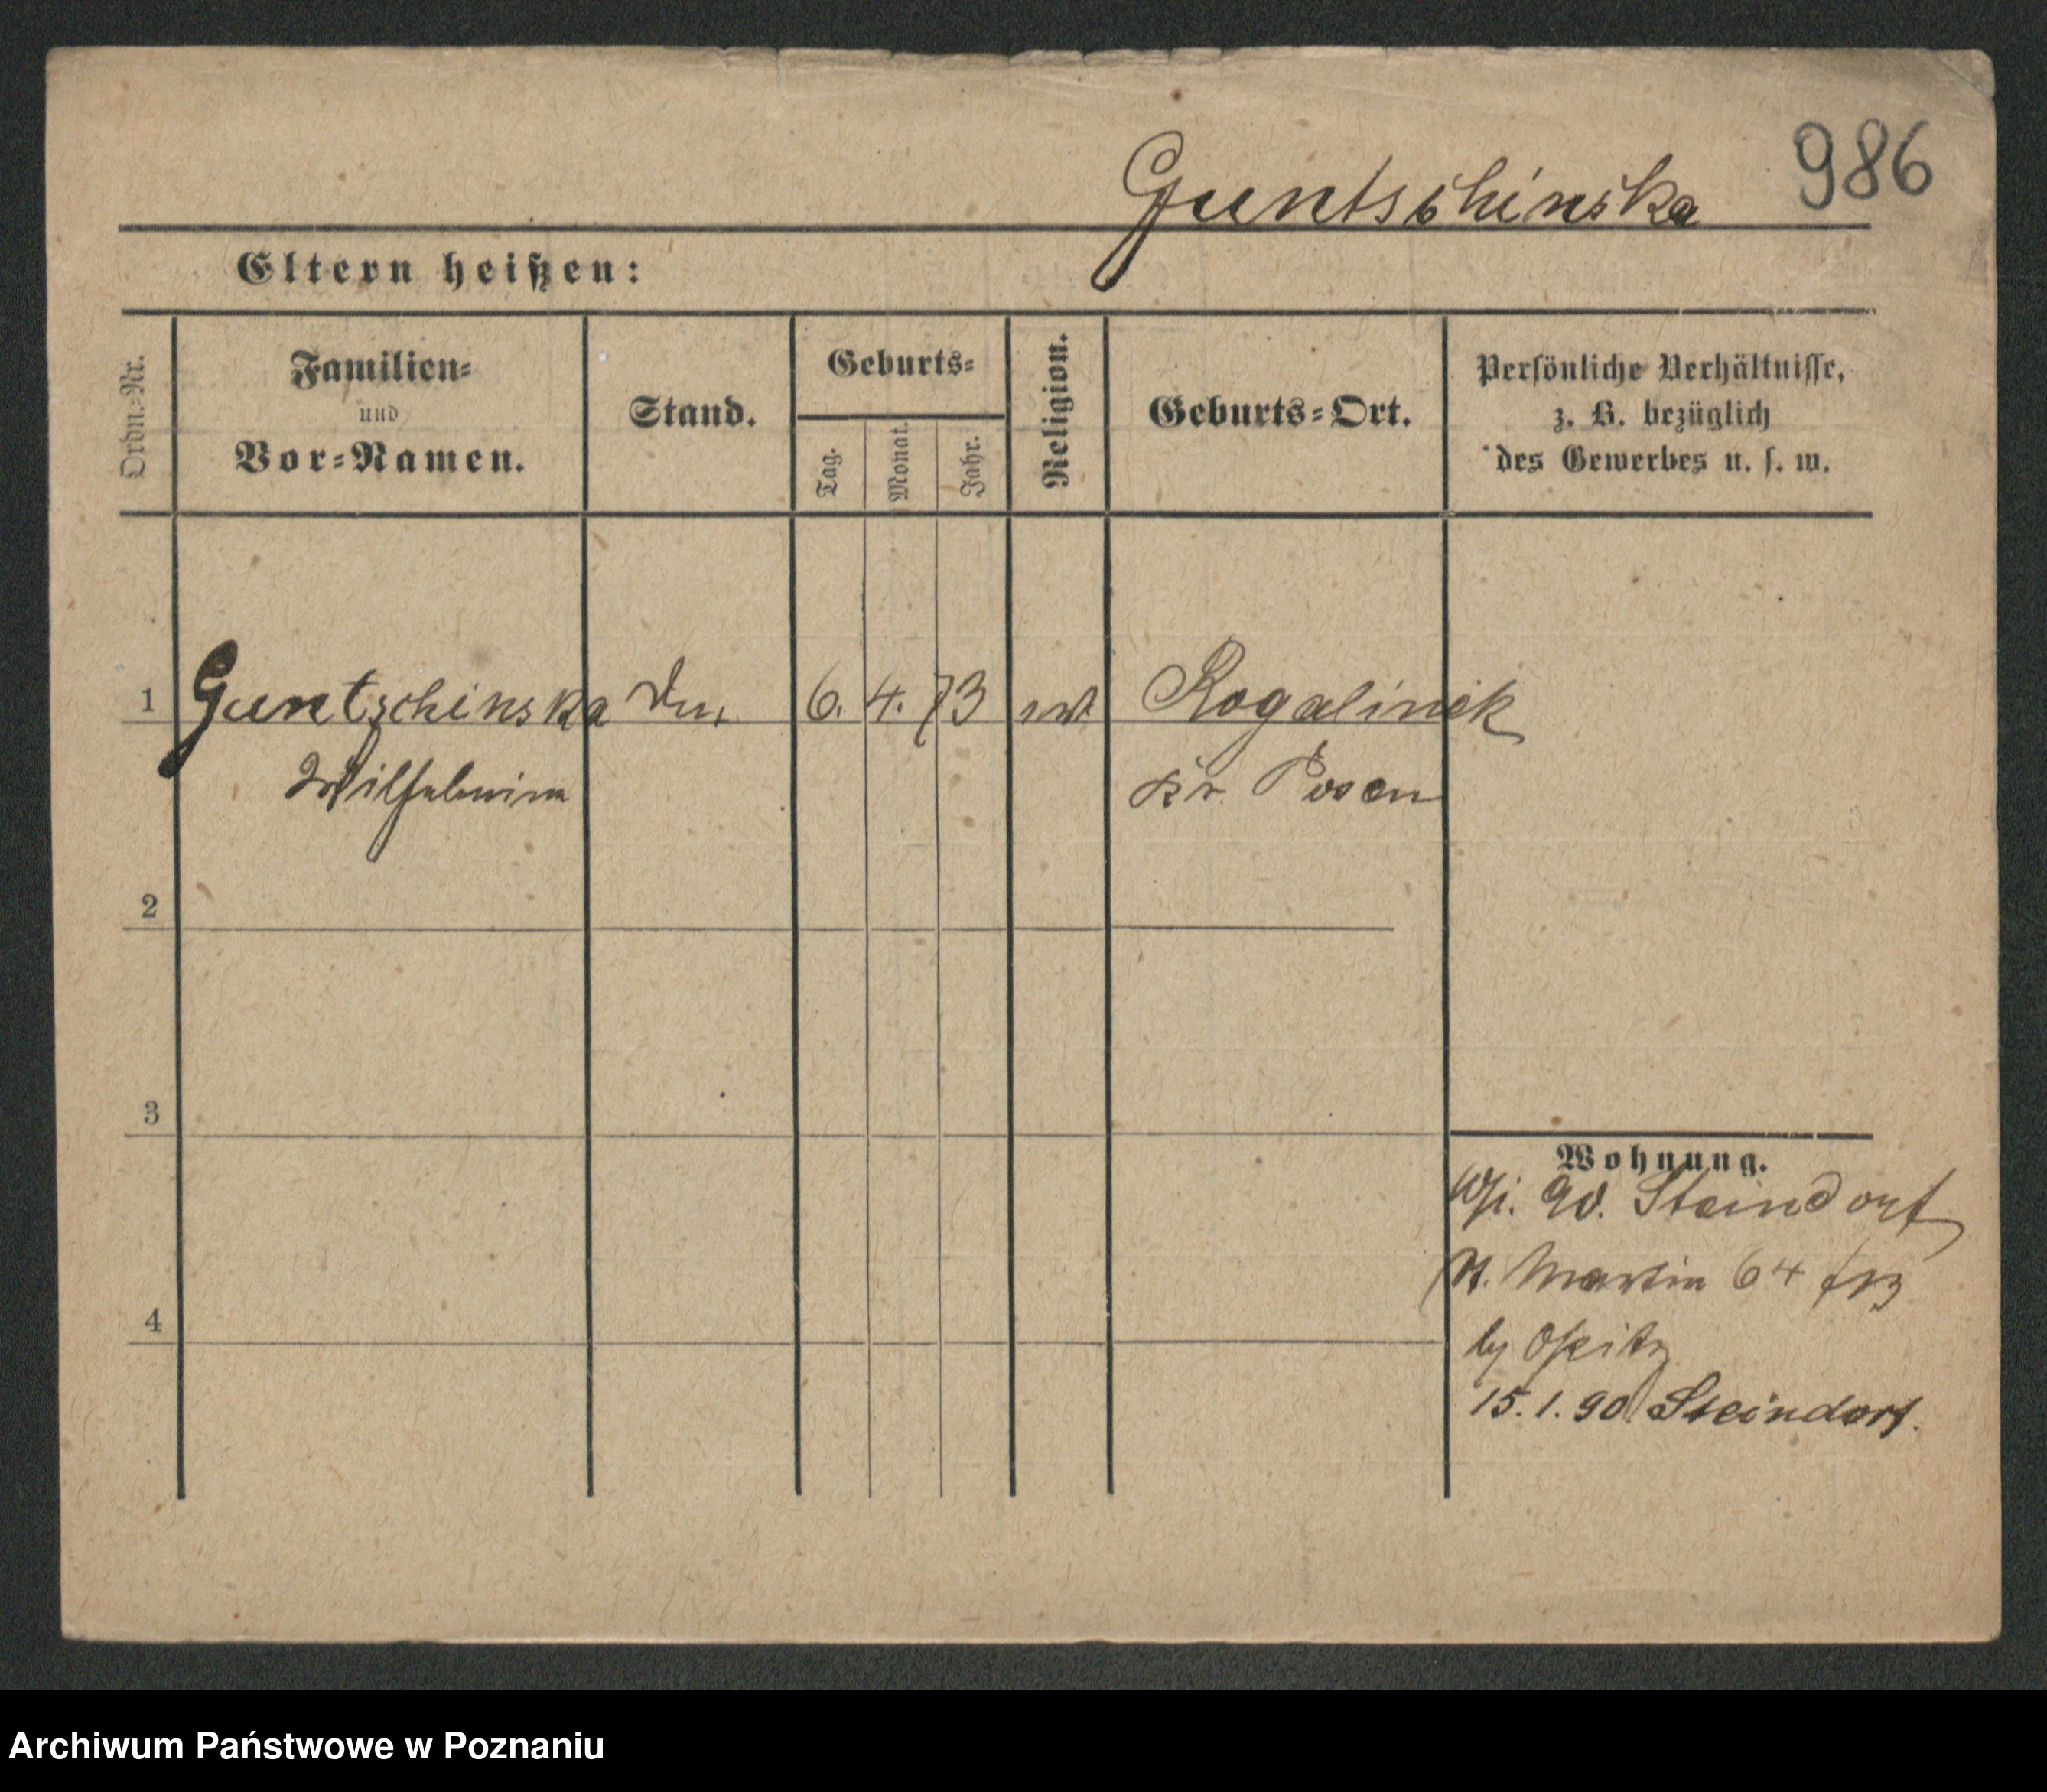 986
Guntschinska
Eltern heißen:
Ordn.-Nr.
Familien-
und
Vor-Namen.
Stand.
Geburts-
Tag.
Monat.
Jahr.
Religion.
Geburts-Ort.
Persönliche Verhältnisse,
z. B. bezüglich
des Gewerbes u. s. w.
1 Guntschinska 6. 4. 73 Rogalinek
Wilhelmine Kr. Posen
2
3
Wohnung.
90. Steindorf
St. Martin 64
4
Opitz
15.1.90 Steindorf.
Archiwum Państwowe w Poznaniu